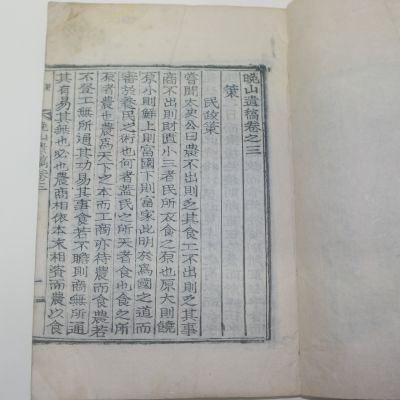 晚山遺稿卷之三
策
民政策
嘗聞太史公曰農不出則乏其食工不出則乏其事
商不出則財匱小三者民所衣食之原也原大則饒
原小則鮮上則富國下則富家此明於爲國之道而
審於養民之術也何者蓋民之所天者食也食之所
原者農也農爲天下之本而工商亦待農而食農若
不登工無所通其功易其事食若不贍則商無所通
其有易其無也必也農商相依本末相資而農以食
晚山遺稿卷三
一